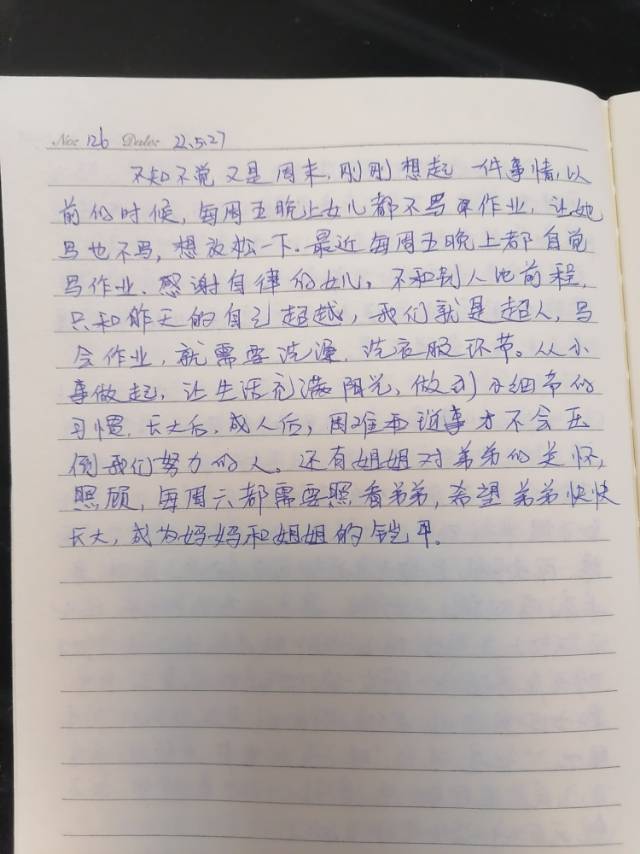 No: 126 Date: 22.5.27
不知不觉又是周末，刚刚想起一件事情，以
前的时候，每周五晚上女儿都不写作业，让她
写也不写，想放松一下。最近每周五晚上都自觉
写作业，感谢自律的女儿，不和别人比前程，
只和昨天的自己超越，我们就是超人，写
会作业，就需要洗澡，洗衣服环节。从小
事做起，让生活充满阳光，做到小细节的
习惯，长大后，成人后，困难和琐事才不会压
倒我们努力的人。还有姐姐对弟弟的关怀，
照顾，每周六都需要照看弟弟，希望弟弟快快
长大，成为妈妈和姐姐的铠甲。